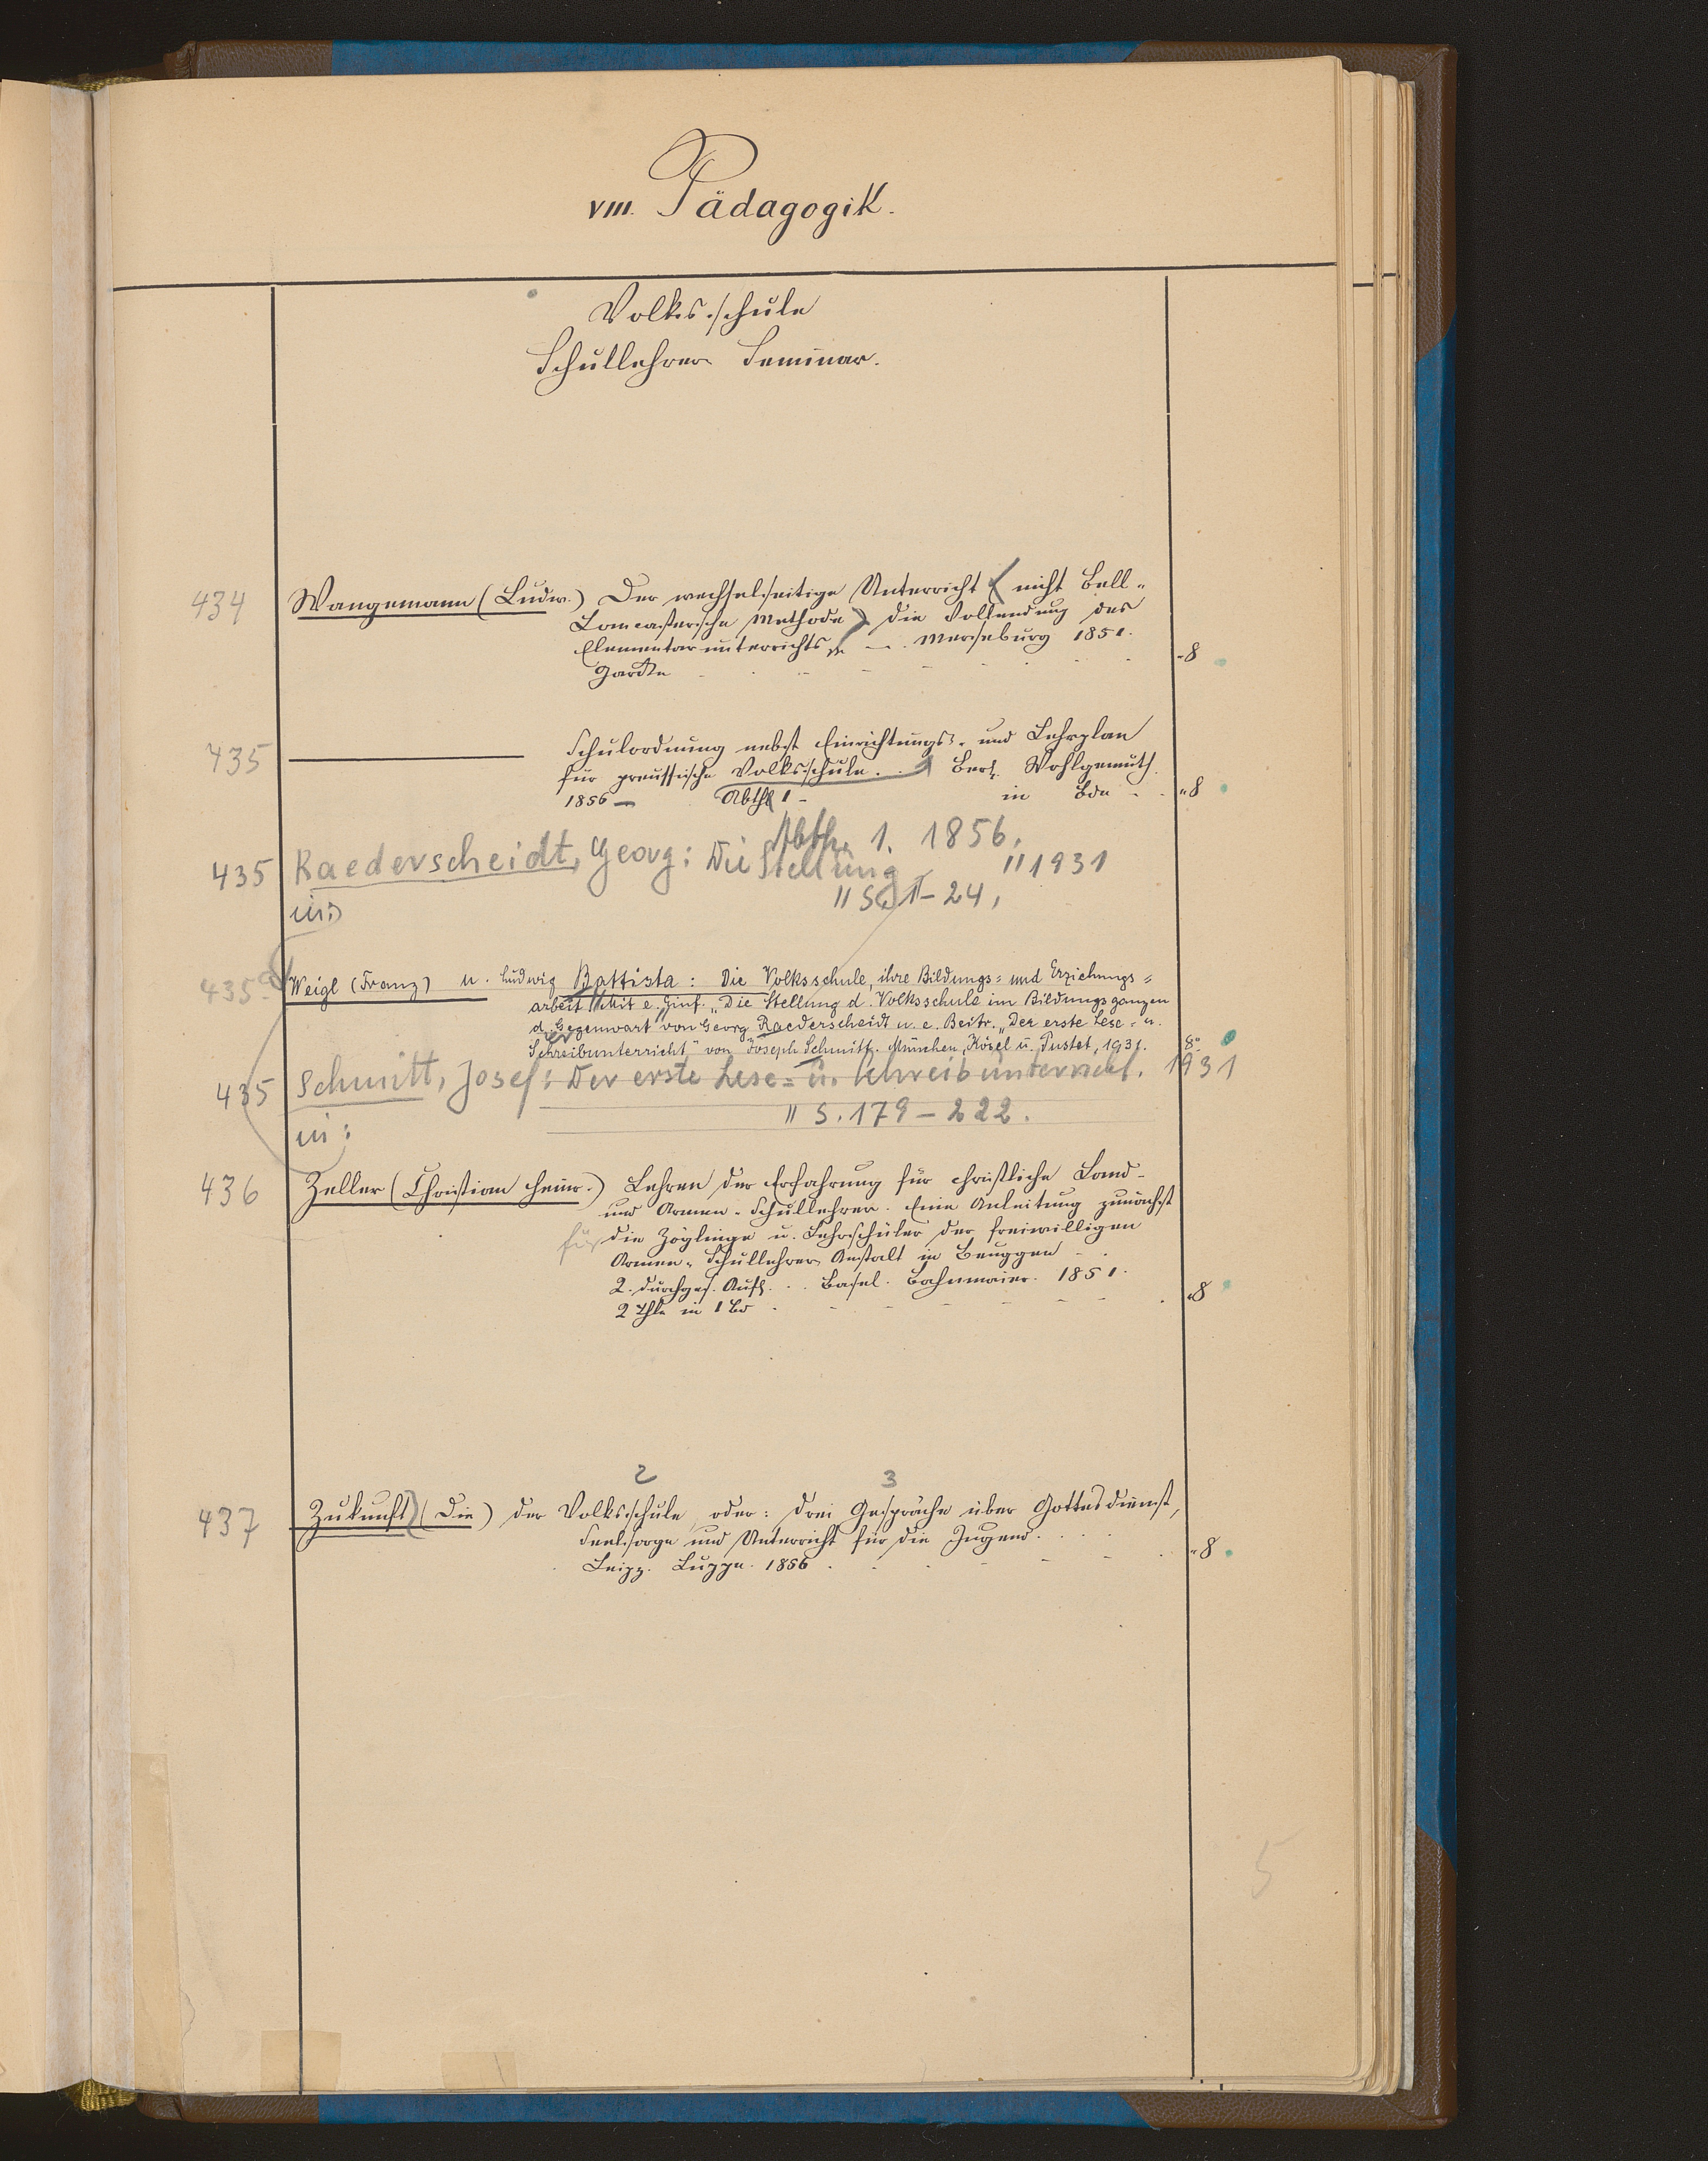 VIII. Pädagogik.
Volksschule
Schullehrer Seminar.
434 Wangemann (Ludw.) Der wechselseitige Unterricht (nicht Bell-
Lancastersche Methode) die Vollendung des
Elementarunterrichts — Merseburg 1851.
Garcke "8
435 ——— Schulordnung nebst Einrichtungs- und Lehrplan
für preussische Volksschule. Berl. Wohlgemuth.
1856 — Abth 1 — in Bdn "8
Abth. 1. 1856.
435 Raederscheidt, Georg: Die Stellung " 1931
in: " S. 1-24,
435a Weigl (Franz) u. Ludwig Battista: Die Volksschule, ihre Bildungs= und Erziehungs=
arbeit. Mit e. Einf. „Die Stellung d. Volksschule im Bildungsganzen
d. Gegenwart" von Georg Raederscheidt u. e. Beitr. „Der erste Lese- u.
Schreibunterricht" von Joseph Schmitt. München, Kösel u. Pustet, 1931. 8°
435 Schmitt, Josef: Der erste Lese= u. Schreibunterricht. 1931
in: " S. 179-222.
436 Zeller (Christian Heinr.) Lehren der Erfahrung für christliche Land-
und Armen-Schullehrer. Eine Anleitung zunächst
für die Zöglinge u. Lehrschüler der freiwilligen
Armen-Schullehrer Anstalt in Beuggen
2. durchges. Aufl. Basel. Bahnmaier. 1851.
2 Thle in 1 Bd "8
2 3
437 Zukunft (Die) der Volksschule, oder: Drei Gespräche über Gottesdienst,
Seelsorge und Unterricht für die Jugend.
Leipz. Luppe. 1856 "8
5